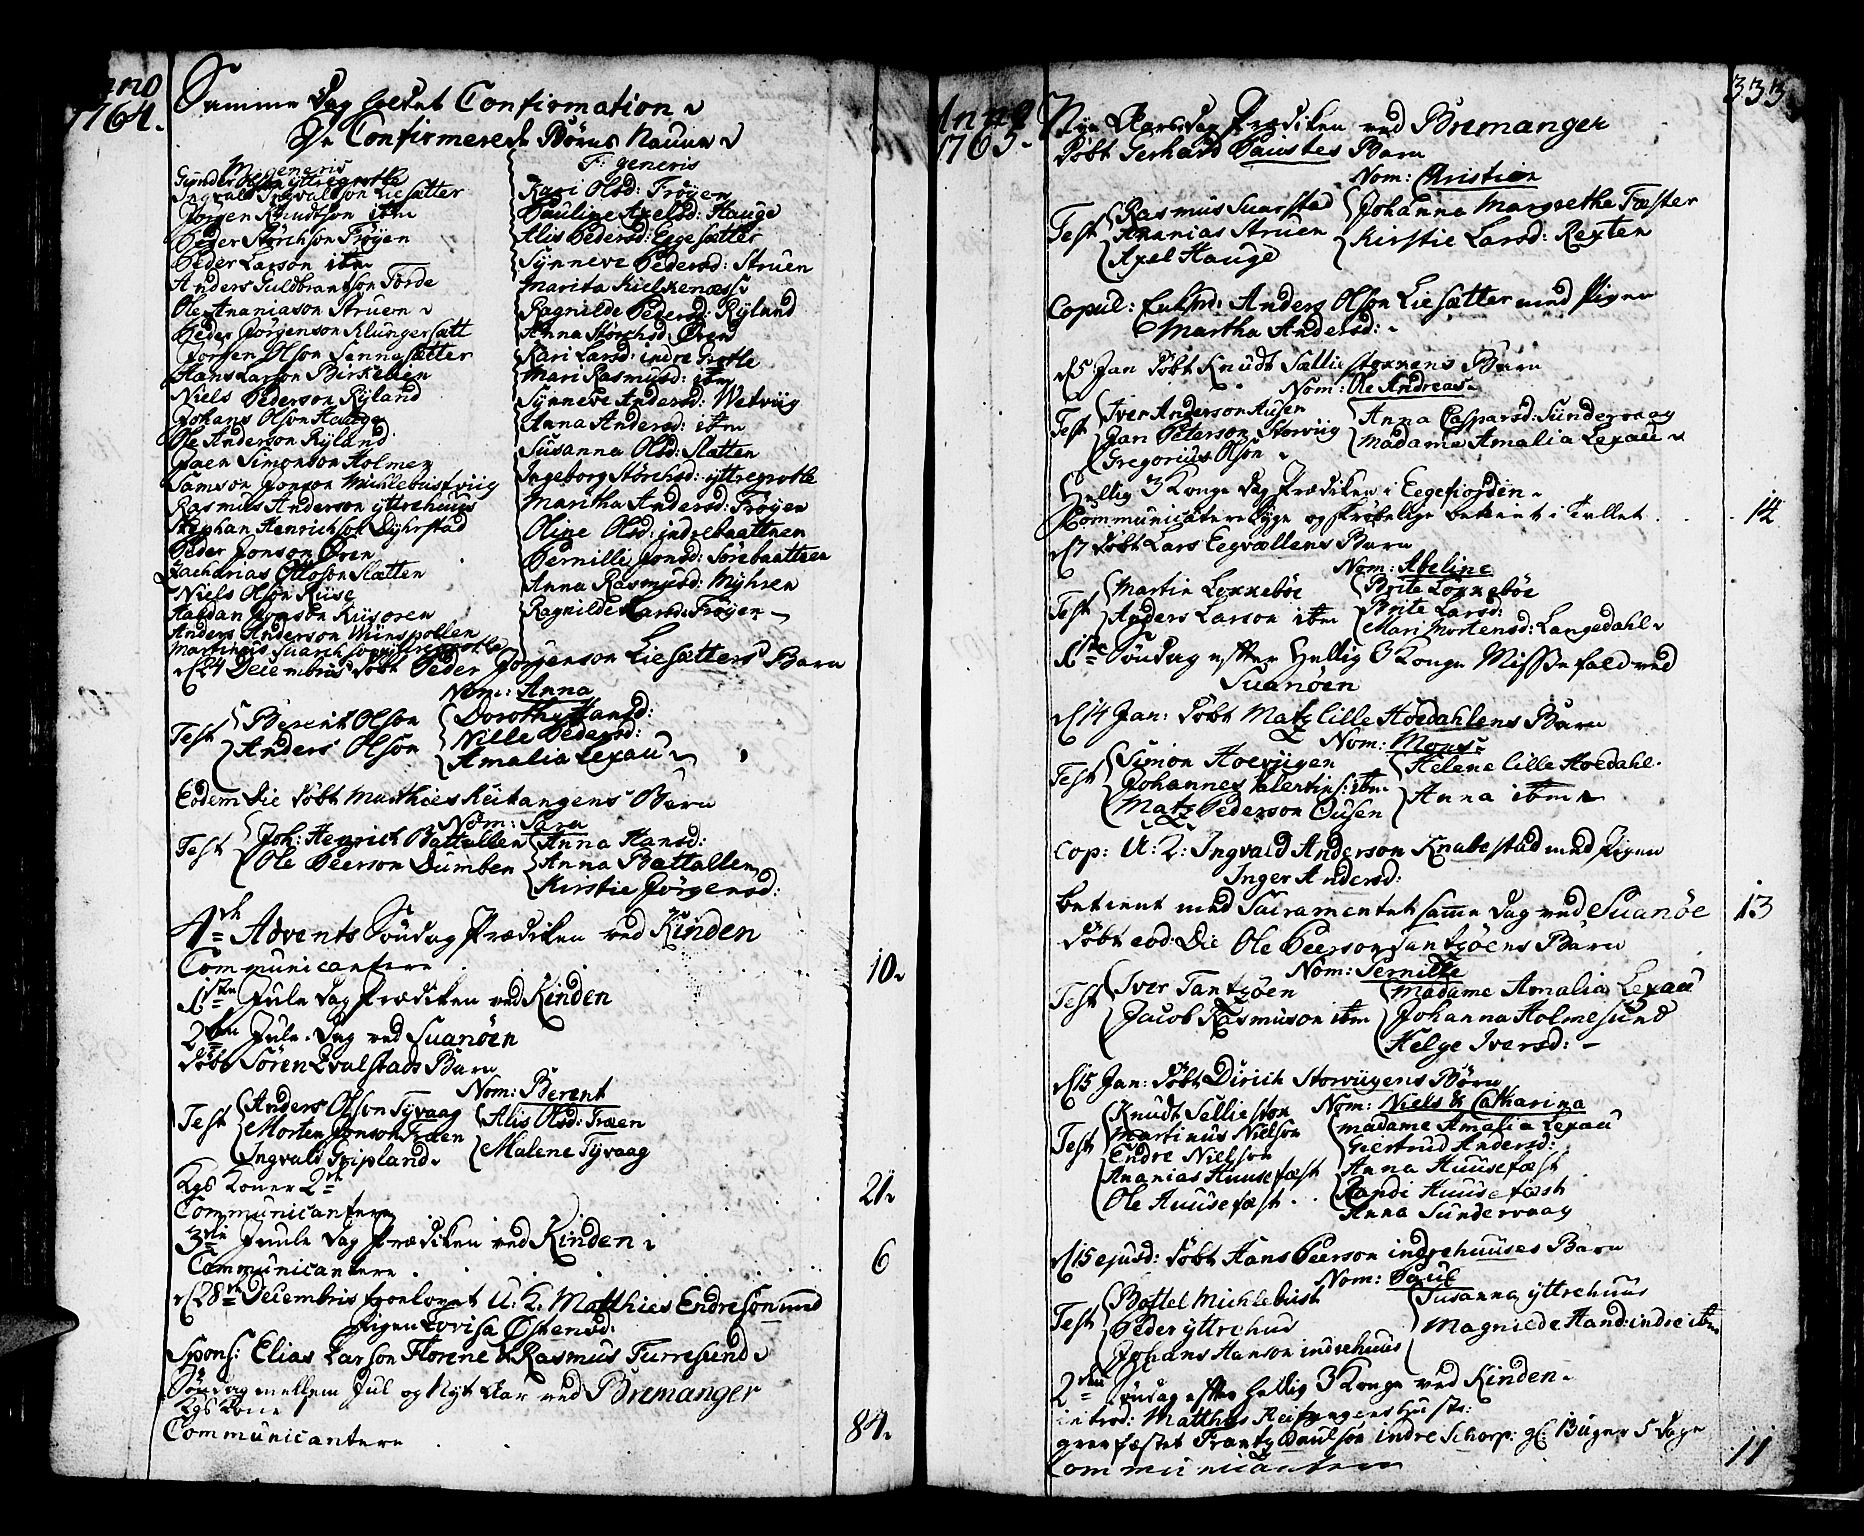 Anno
1764.
Samme Dag holdet Confirmation
De Confirmerede Børns Naune
M generis
Gunder Olson yttregrotle
Ingvald Ingvaldson Liesætter
Jørgen Knudtson itm
Peder Størchson Frøyen
Peder Larson itm
Anders Guldbrantson Førde
Ole Ananiason Struen
Peder Jørgenson Klungersætt
Jørgen Olson Sennesætter
Hans Larson Birkelien
Niels Pederson Ryland
Johans Olson Hauge
Ole Anderson Ryland
Joen Simonson Holmen
Samson Jonson Michlebustviig
Rasmus Anderson yttrehuus
Stephan Henrichson Dyhrstad
Peder Jonson Øren
Zacharias Ottoson Slatten
Niels Olson Riise
Haldan Jonson Riisøren
Anders Anderson Munspollen
Martinus
F. generis
Kari Olsd: Frøyen
Pauline Axelsd: Hauge
Alis Pedersd: Eggesætter
Synneve Pedersd: Struen
Marita Kielkenæss
Ragnilde Pedersd: Ryland
Anna Størchsd Øren
Kari Larsd: indre Grotle
Mari Rasmusd: itm
Synneve Andersd: Wetviig
Anna Andersd: itm
Susanna Olsd: Slatten
Ingeborg Størchsd: yttregrotle
Maritha Andersd: Frøyen
Oline Olsd: indrebaattnen
Pernille Jonsd: Sørebaattnen
Anna Rasmusd: Myhren
Ragnilde Larsd: Frøyen
d 24 Decembris døbt Peder Jørgenson Liesætters Barn
Nom: Anna
Test Berent Olson
Anders Olson
Dorothe Hansd:
Nille Pedersd:
Amalia Lexau
Eodem Die døbt Matthies Reitangens Barn
Nom: Sara
Test Joh: Henrich Battallen
Ole Peerson Dumben
Anna Hansd:
Anna Battallen
Kirstie Jørgensd:
4de Advents Søndag Prædiken ved Kinden
Communicantere 10
1ste Jule Dag Prædiken ved Kinden
2den Jule Dag ved Suanøen
døbt Søren Qvalstads Barn
Nom: Berent
Test Anders Olson Tyvaag
Morten Jonson Træen
Ingvald Gripland
Alis Olsd: Træen
Malene Tyvaag
Kgs Koner 2
Communicantere 21
3die Juule Dag Prædiken ved Kinden
Communicantere 6
d 28 Decembris troelovet U: K: Matthies Endreson med
Pigen Lovisa Østensd:
Spons: Elias Larson Florene & Rasmus Furresund
Søndag mellem Jul og Nyt Aar ved Bremanger
Kgs Kone
Communicantere 84
333
Anno
1765.
Nye Aarsdag Prædiken ved Bremanger
døbt Gerhard Paustes Barn
Nom: Christian
Test Rasmus Suarstad
Ananias Struen
Axel Hauge
Johanna Margrethe Fæster
Kirstie Larsd: Rexten
Copul: Enkmd: Anders Olson Liesætter med Pigen
Martha Andersd:
d 5 Jan døbt Knudt Sælliestokkens Barn
Nom: Ole Andreas
Test Iver Anderson Ausen
Jan Peterson Storviig
Gregorius Olson
Anna Caspersd: Sundervaag
Madame Amalia Lexau
Hellig 3 Konge Dag Prædiken i Eegefiorden
Communicantere syge og skrøbelige betient i Tallet 14
d 7 døbt Lars Eegvællens Barn
Nom: Abeline
Test Martin Lokkebøe
Anders Larson itm
Brite Lokkebøe
Brite Larsd:
Mari Mortensd: Langedahl
1ste Søndag efter Hellig 3 Konge Missefald ved
Suanøen
d 14 Jan: døbt Matz lille Hoedahlens Barn
Nom: Mons
Test Simon Hoeviigen
Johannes Valentins: itm
Matz Pederson Ousen
Helene lille Hoedahl
Anna itm
Cop: U: K: Ingvald Anderson Knabestad med Pigen
Inger Andersd:
betient med Sacramentet samme Dag ved Suanøe 13
døbt eod: Die Ole Peerson Tansøens Barn
Nom: Pernille
Test Iver Tansøen
Jacob Rasmuson itm
Madame Amalia Lexau
Johanna Holmesund
Helge Iversd:
d 15 Jan: døbt Dirich Storviigens Børn
Nom: Niels & Catharina
Test Knudt Selliesten
Martinus Nielson
Endre Nielson
Ananias Huusefæst
Ole Huusefæst
Madame Amalia Lexau
Geertrud Andersd:
Anna Huusefæst
Randi Huusefæst
Anna Sundervaag
d 15 ejusd: døbt Hans Peerson indrehuuses Barn
Nom: Paul
Test Bottel Michlebust
Peder yttrehus
Johans Hanson indrehuus
Susanna yttrehuus
Magnilde Hansd: indre itm
2den Søndag efter Hellig 3 Konge ved Kinden
introd: Matthies Reitangens hustr:
græsfæstet Frantz Paulson indre Schorp: gl: 13 uger 5 dage
Communicantere 11